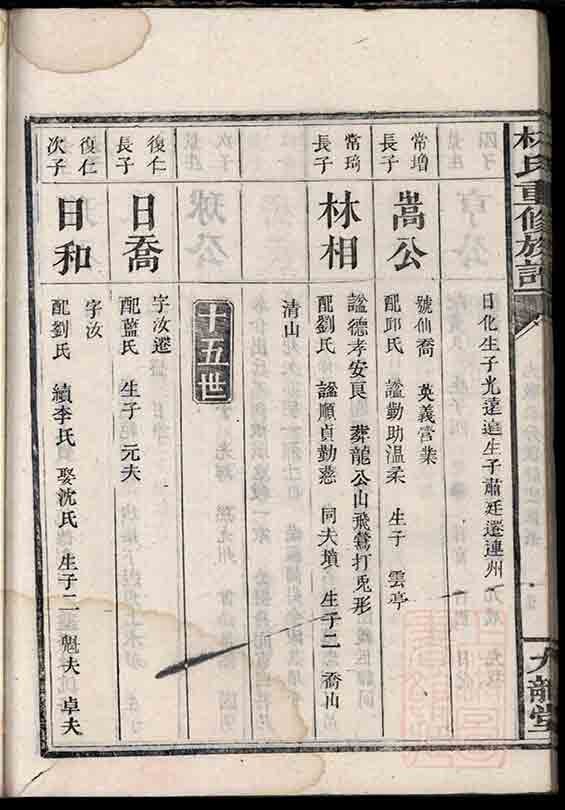 林氏重修族譜
九龍堂
日化生子光達進生子肅廷遷連州
常增
長子
嵩公
號仙喬 英義營業
配邱氏 諡勤助溫柔 生子 雲亭
常琦
長子
林相
諡德孝安良 葬龍公山飛鶯打兎形
配劉氏 諡順貞勤慈 同夫墳 生子二 喬山
清山
十五世
復仁
長子
日喬
字汝遷
配藍氏 生子 元夫
復仁
次子
日和
字汝
配劉氏 續李氏 娶沈氏 生子二 魁夫 卓夫